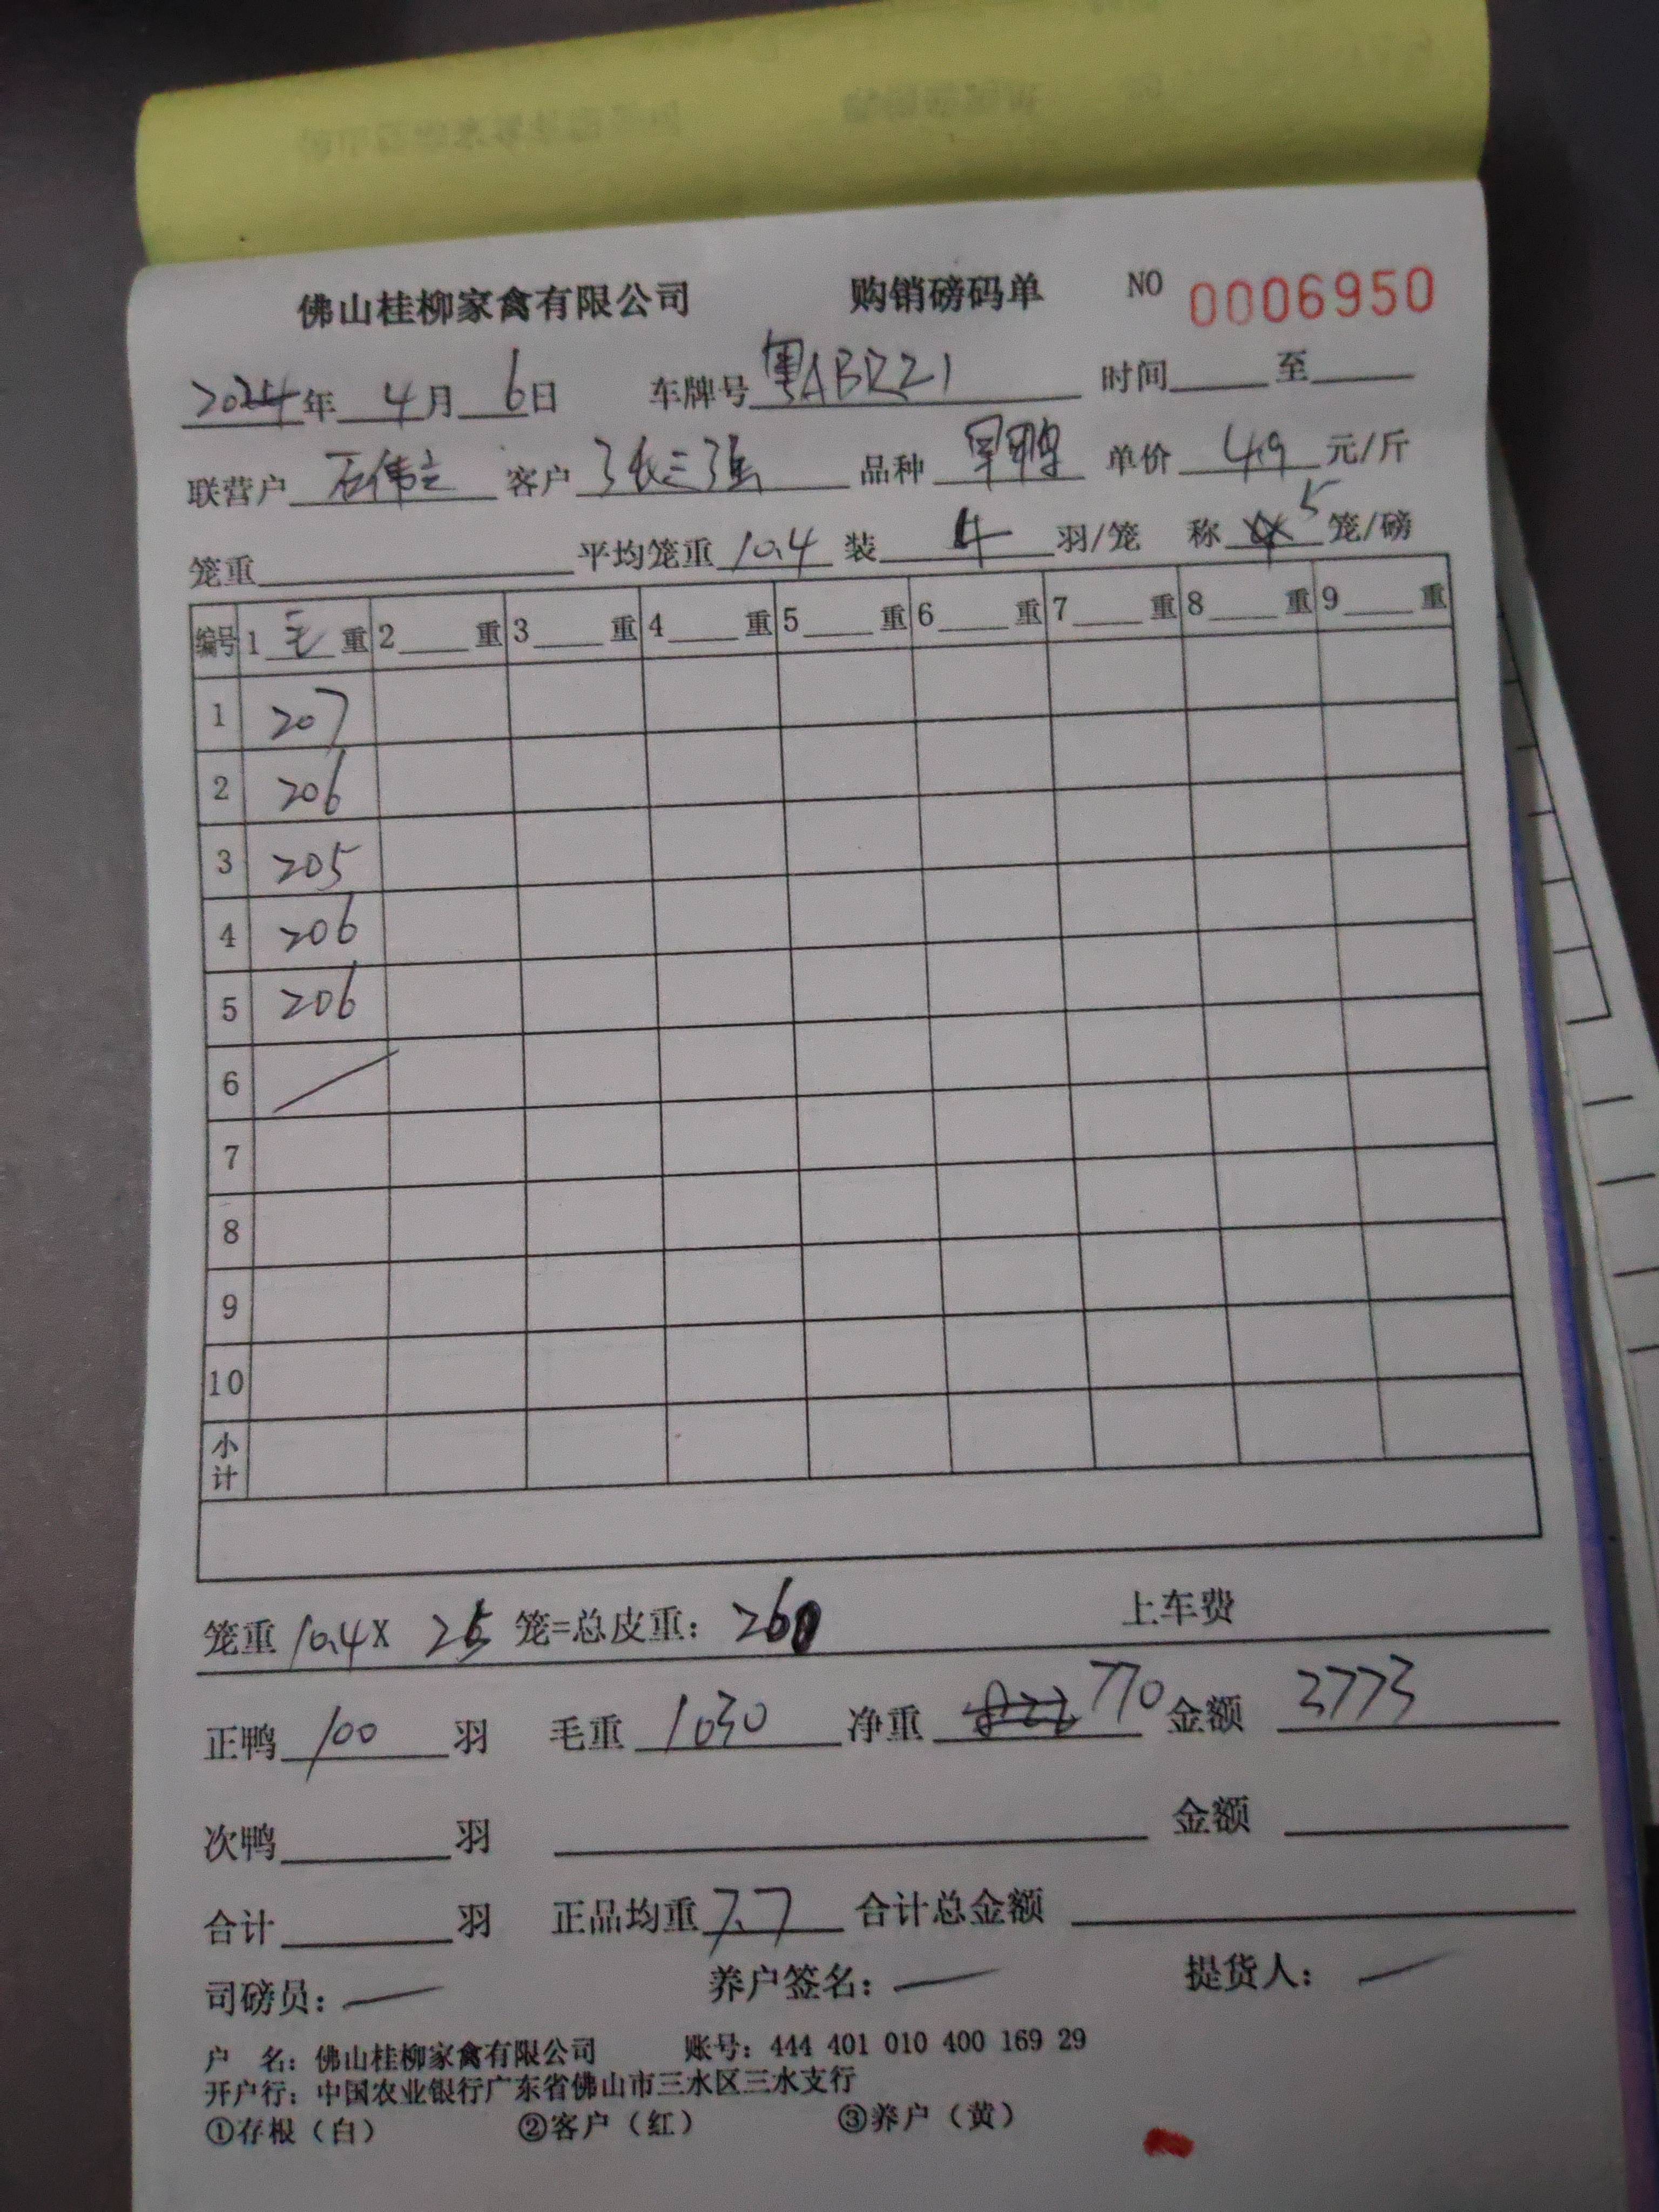 佛山桂柳家禽有限公司 购销磅码单 NO 0006950
2024年 4月 6日 车牌号 粤ABR21 时间 至
联营户 石伟立 客户 张三强 品种 单价 4.9 元/斤
笼重 平均笼重 10.4 装 4 羽/笼 称 5 笼/磅
编号 1 毛 重 2 重 3 重 4 重 5 重 6 重 7 重 8 重 9 重
1 207
2 206
3 205
4 206
5 206
6
7
8
9
10
小计
笼重 10.4 X 25 笼=总皮重: 260 上车费
正鸭 100 羽 毛重 1030 净重 770 金额 3773
次鸭 羽 金额
合计 羽 正品均重 7.7 合计总金额
司磅员: 养户签名: 提货人:
户 名: 佛山桂柳家禽有限公司 账号: 444 401 010 400 169 29
开户行: 中国农业银行广东省佛山市三水区三水支行
①存根（白） ②客户（红） ③养户（黄）